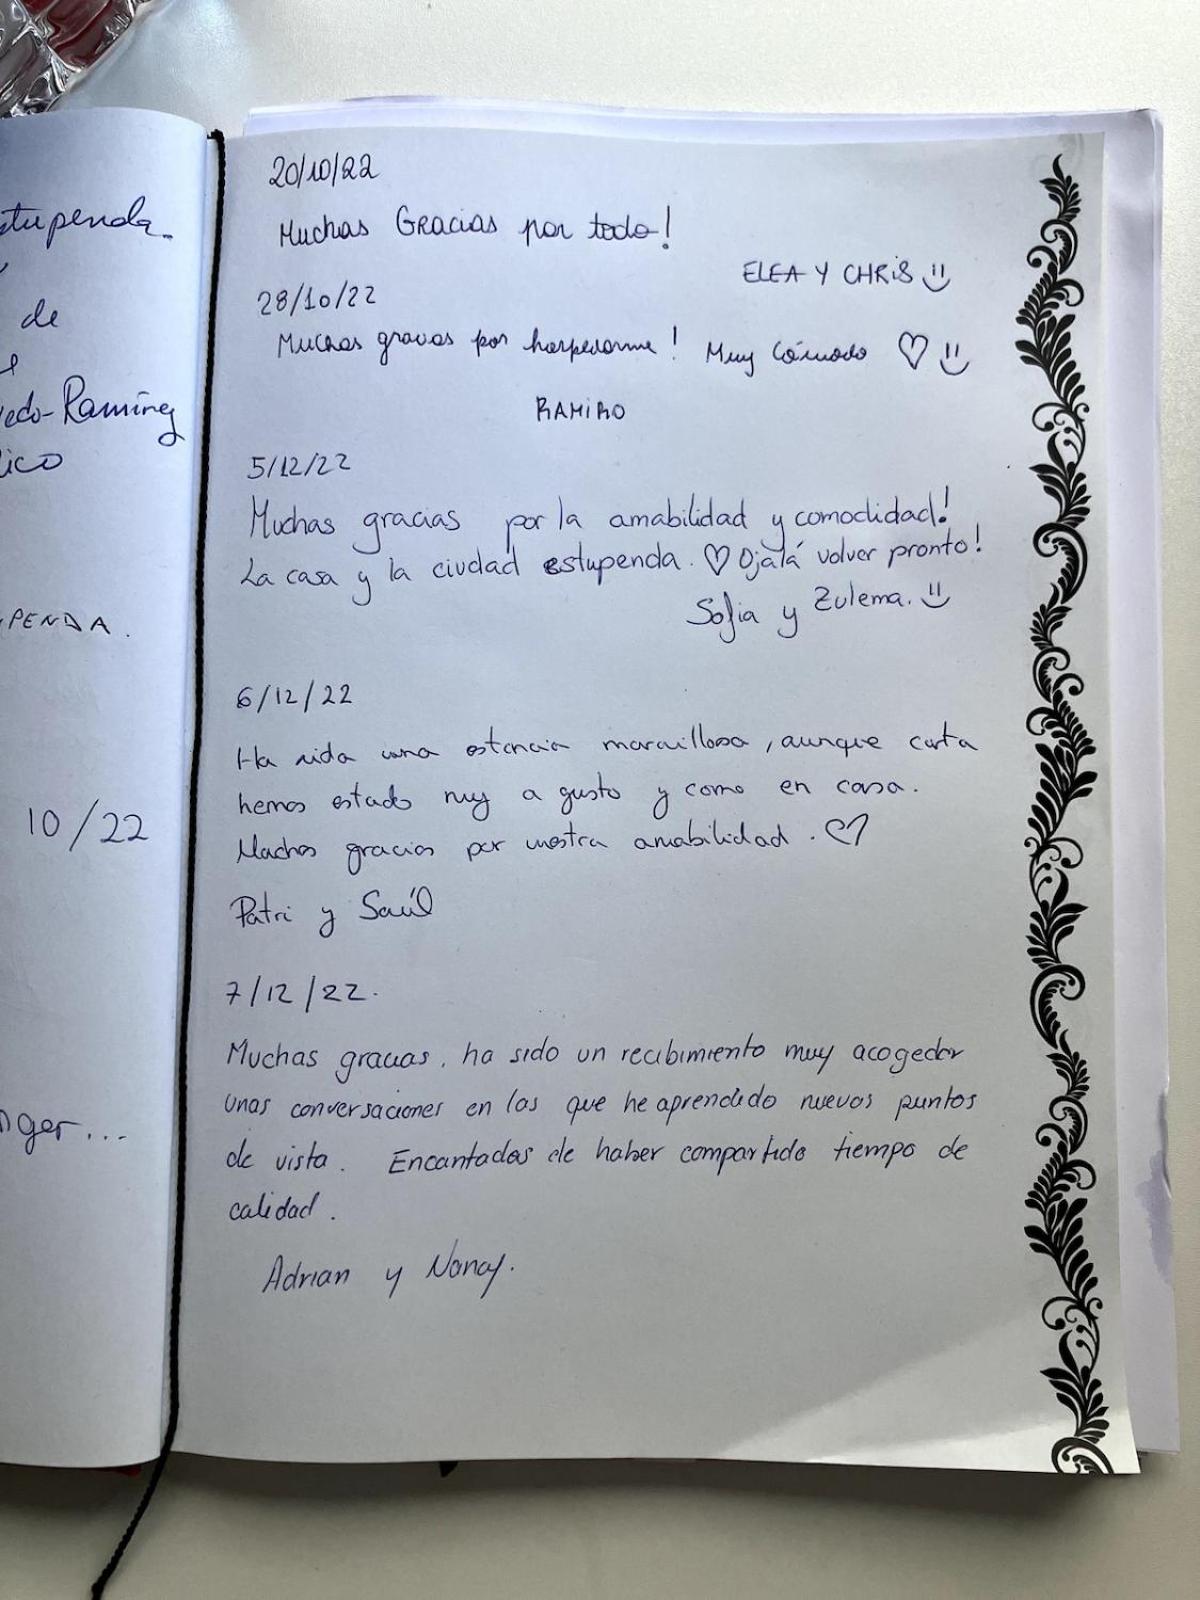 stupenda.
de
edo-Ramírez
ico
PENDA.
10/22
nger...
20/10/22
Muchas Gracias por todo!
ELEA Y CHRIS
28/10/22
Muchas gracias por hospedarme! Muy Cómodo ♡
RAMIRO
5/12/22
Muchas gracias por la amabilidad y comodidad!
La casa y la ciudad estupenda. ♡ Ojalá volver pronto!
Sofia y Zulema.
6/12/22
Ha sida una estancia maravillosa, aunque corta
hemos estado muy a gusto y como en casa.
Muchas gracias por vuestra amabilidad. ♡
Patri y Saúl
7/12/22.
Muchas gracias, ha sido un recibimiento muy acogedor
unas conversaciones en las que he aprendido nuevos puntos
de vista. Encantados de haber compartido tiempo de
calidad.
Adrian y Nancy.